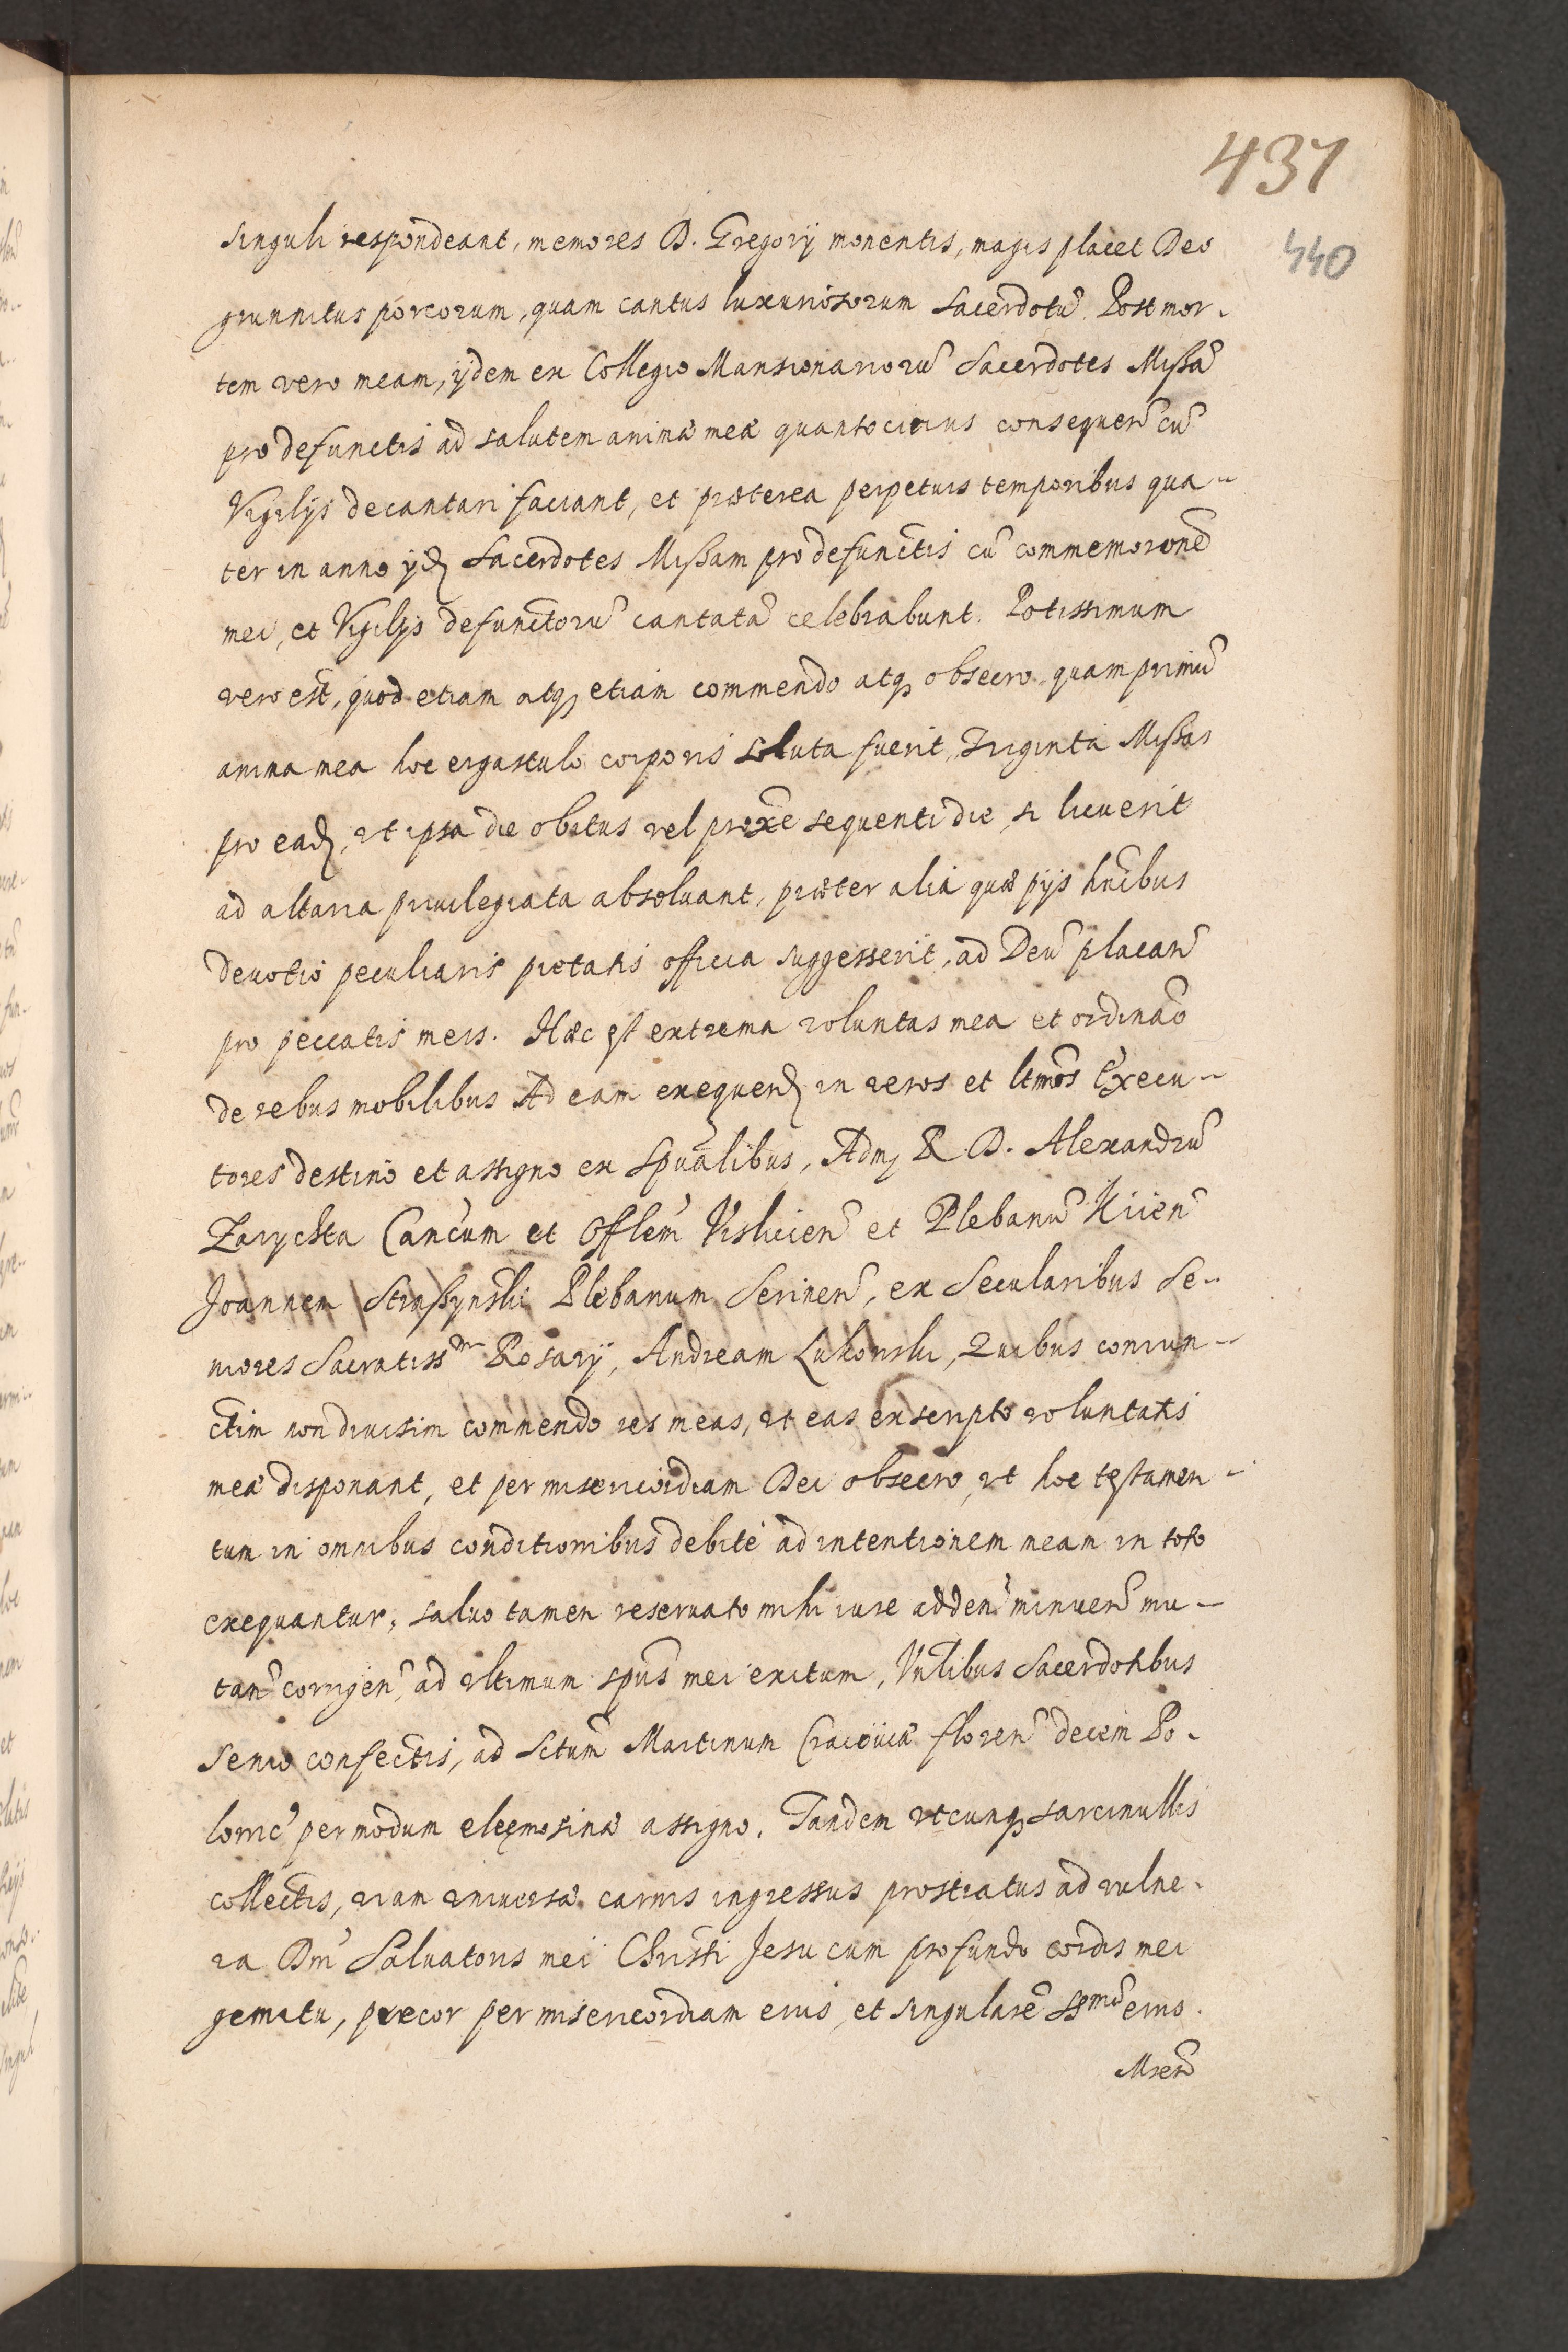 437
440
singuli respondeant, memores D. Gregorij monentis, magis placet Deo
grunnitus porcorum, quam cantus luxuriosorum Sacerdotũ. Post mor-
tem vero meam, ijdem ex Collegio Mansionariorũ Sacerdotes Missã
pro defunctis ad salutem animæ meæ quantocitius consequeñ cũ
Vigilijs decantari faciant, et præterea perpetuis temporibus qua-
ter in anno ijd. Sacerdotes Missam pro defunctis cũ commemoronẽ
mei, et Vigilijs defunctorũ cantatã celebrabunt. Potissimum
vero est, quod etiam atq. etiam commendo atq. obsecro, quam primũ
anima mea hoc ergastulo corporis soluta fuerit, Triginta Missas
pro ead., ut ipsa die obitus vel proxẽ sequenti die, si licuerit
ad altaria priuilegiata absoluant, præter alia quæ pijs hñcibus
deuotio peculiaris pietatis officia suggesserit, ad Deũ placañ
pro peccatis meis. Hæc est extrema voluntas mea et ordinaõ
de rebus mobilibus Ad eam exequend. in veros et ltmõs Execu-
tores destino et assigno ex spũalibus, Adm. R. D. Alexandrũ
Zarychta Cancum et Offlem Vislicieñ et Plebanũ Kiieñ
Joannem Straszynski Plebanum Serineñ, ex Secularibus Se-
niores Sacratiss. Rosarij, Andream Lukonski, Quibus coniun-
ctim non diuisim commendo res meas, ut eas ex scripto voluntatis
meæ disponant, et per misericordiam Dei obsecro, ut hoc testamen-
tum in omnibus conditionibus debitè ad intentionem meam in toto
exequantur, saluo tamen reseruato mihi iure addeñ minueñ mu-
tañ corrigeñ, ad ultimum spũs mei exitum, Vñlibus Sacerdotibus
senio confectis, ad Sctum Martinum Cracoviæ floreñ decem Po-
lonic' per modum eleęmosinæ assigno. Tandem utcunq. sarcinullis
collectis, viam vniuersæ carnis ingressus prostratus ad vulne-
ra Dñi Saluatoris mei Christi Jesu cum profundo cordis mei
gemitu, precor per misericordiam eius, et singularẽ SSmũ eius
Mreñ